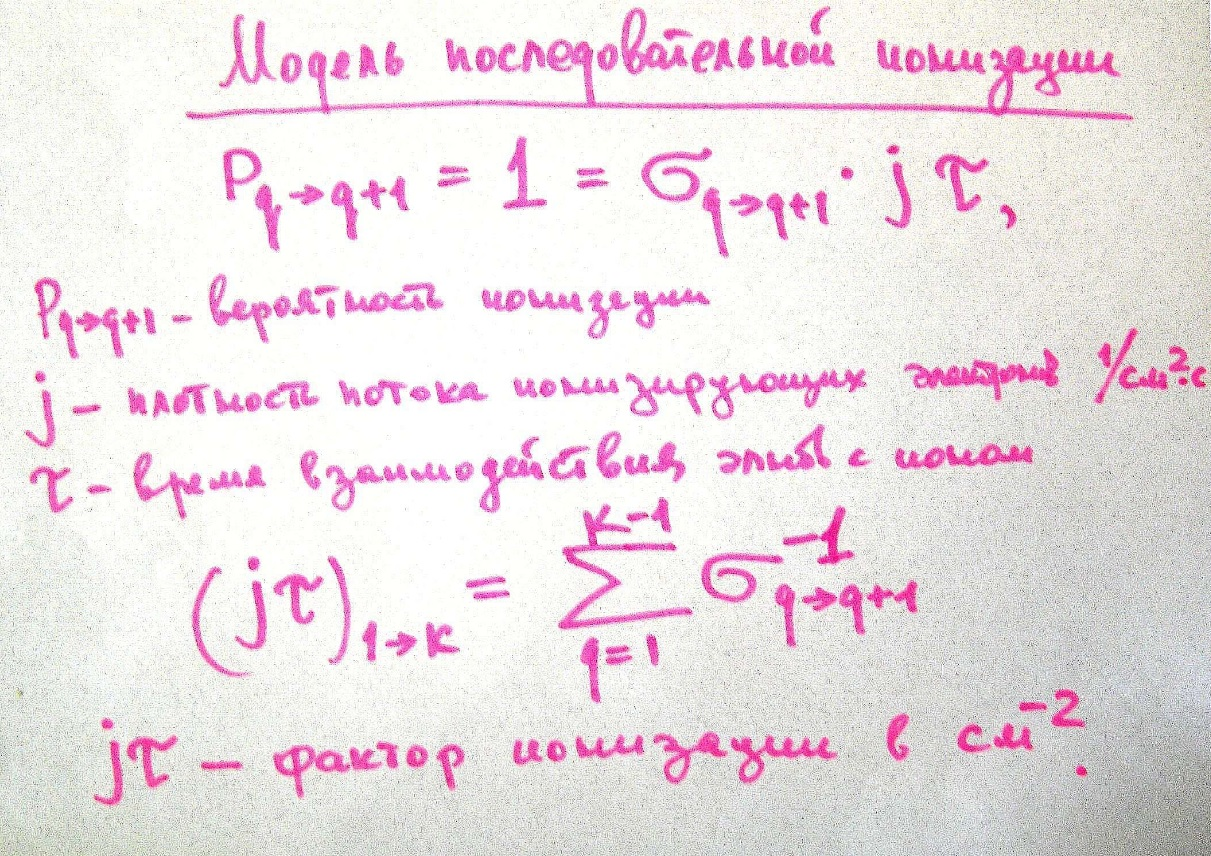 Модель последовательной ионизации
P q→q+1 = 1 = σ q→q+1 · j τ,
P q→q+1 – вероятность ионизации
j – плотность потока ионизирующих электронов 1/см²·с
τ – время взаимодействия эл-ов с ионом
(jτ) 1→K = ∑ K-1 q=1 σ⁻¹ q→q+1
jτ – фактор ионизации в см⁻².